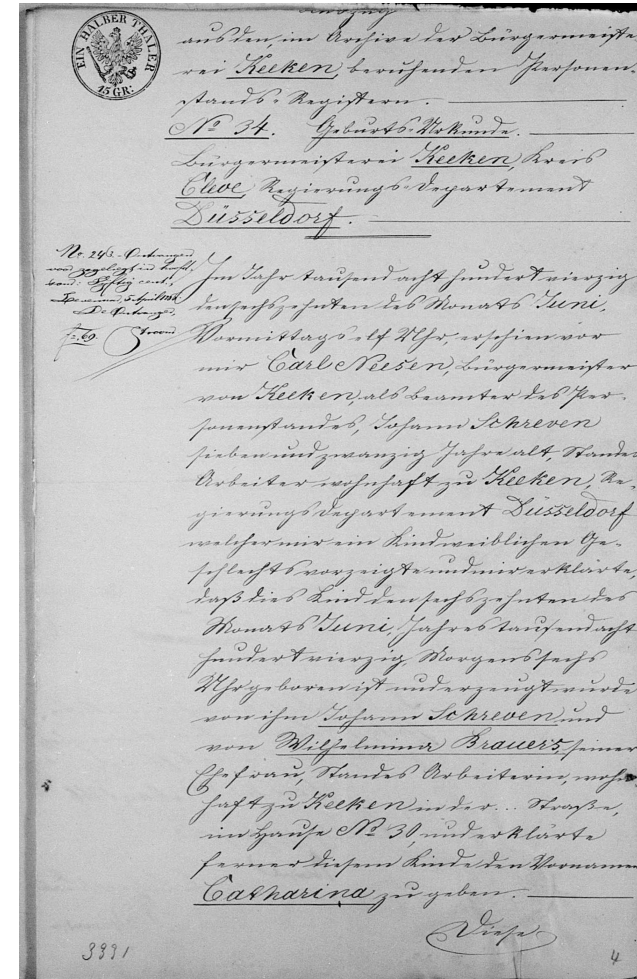 Auszug
EIN HALBER THALER
15 GR:
aus den, im Archive der Bürgermeiste-
rei Keeken, beruhenden Personen-
stands-Registern.
No 34. Geburts-Urkunde.
Bürgermeisterei Keeken, Kreis
Cleve, Regierungs-Departement
Düsseldorf.
No. 246.
Im Jahr tausend acht hundert vierzig
den sechszehnten des Monats Juni,
Vormittags elf Uhr, erschien vor
mir Carl Neesen, Bürgermeister
von Keeken, als Beamter des Per-
sonenstandes, Johann Schreven
sieben und zwanzig Jahre alt, Standes
Arbeiter wohnhaft zu Keeken, Re-
gierungs Departement Düsseldorf
welcher mir ein Kind weiblichen Ge-
schlechts vorzeigte und mir erklärte,
daß dies Kind den sechszehnten des
Monats Juni, Jahres tausend acht
hundert vierzig, Morgens sechs
Uhr geboren ist und erzeugt wurde
von ihm Johann Schreven und
von Wilhelmina Brauers, seiner
Ehefrau, Standes Arbeiterin, wohn-
haft zu Keeken in der ... Straße,
im Hause No 30, und erklärte
ferner diesem Kinde den Vornamen
Catharina zu geben.
Diese
3991
4